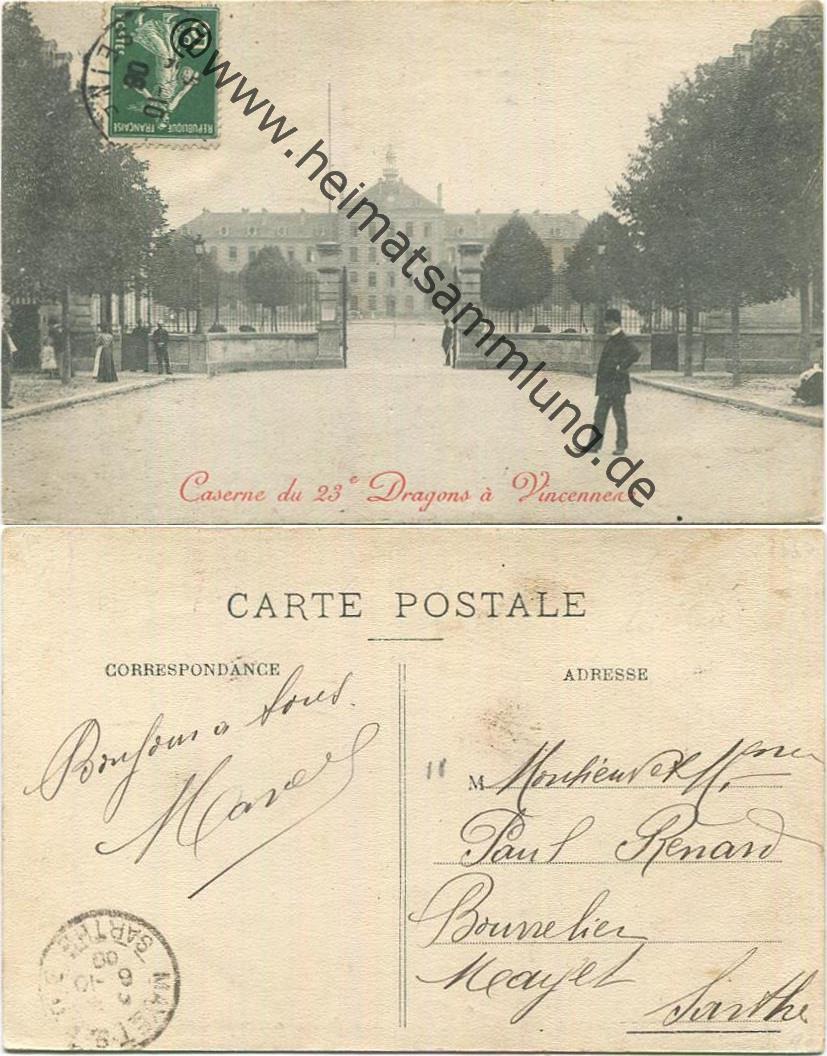 RÉPUBLIQUE FRANÇAISE
POSTES
@www.heimatsammlung.de
Caserne du 23e Dragons à Vincennes
CARTE POSTALE
CORRESPONDANCE
ADRESSE
Bonjour a tous.
Marcel
M Monsieur et Mme
Paul Renard
Bourrelier
Mayet
Sarthe
MAYET
SARTHE